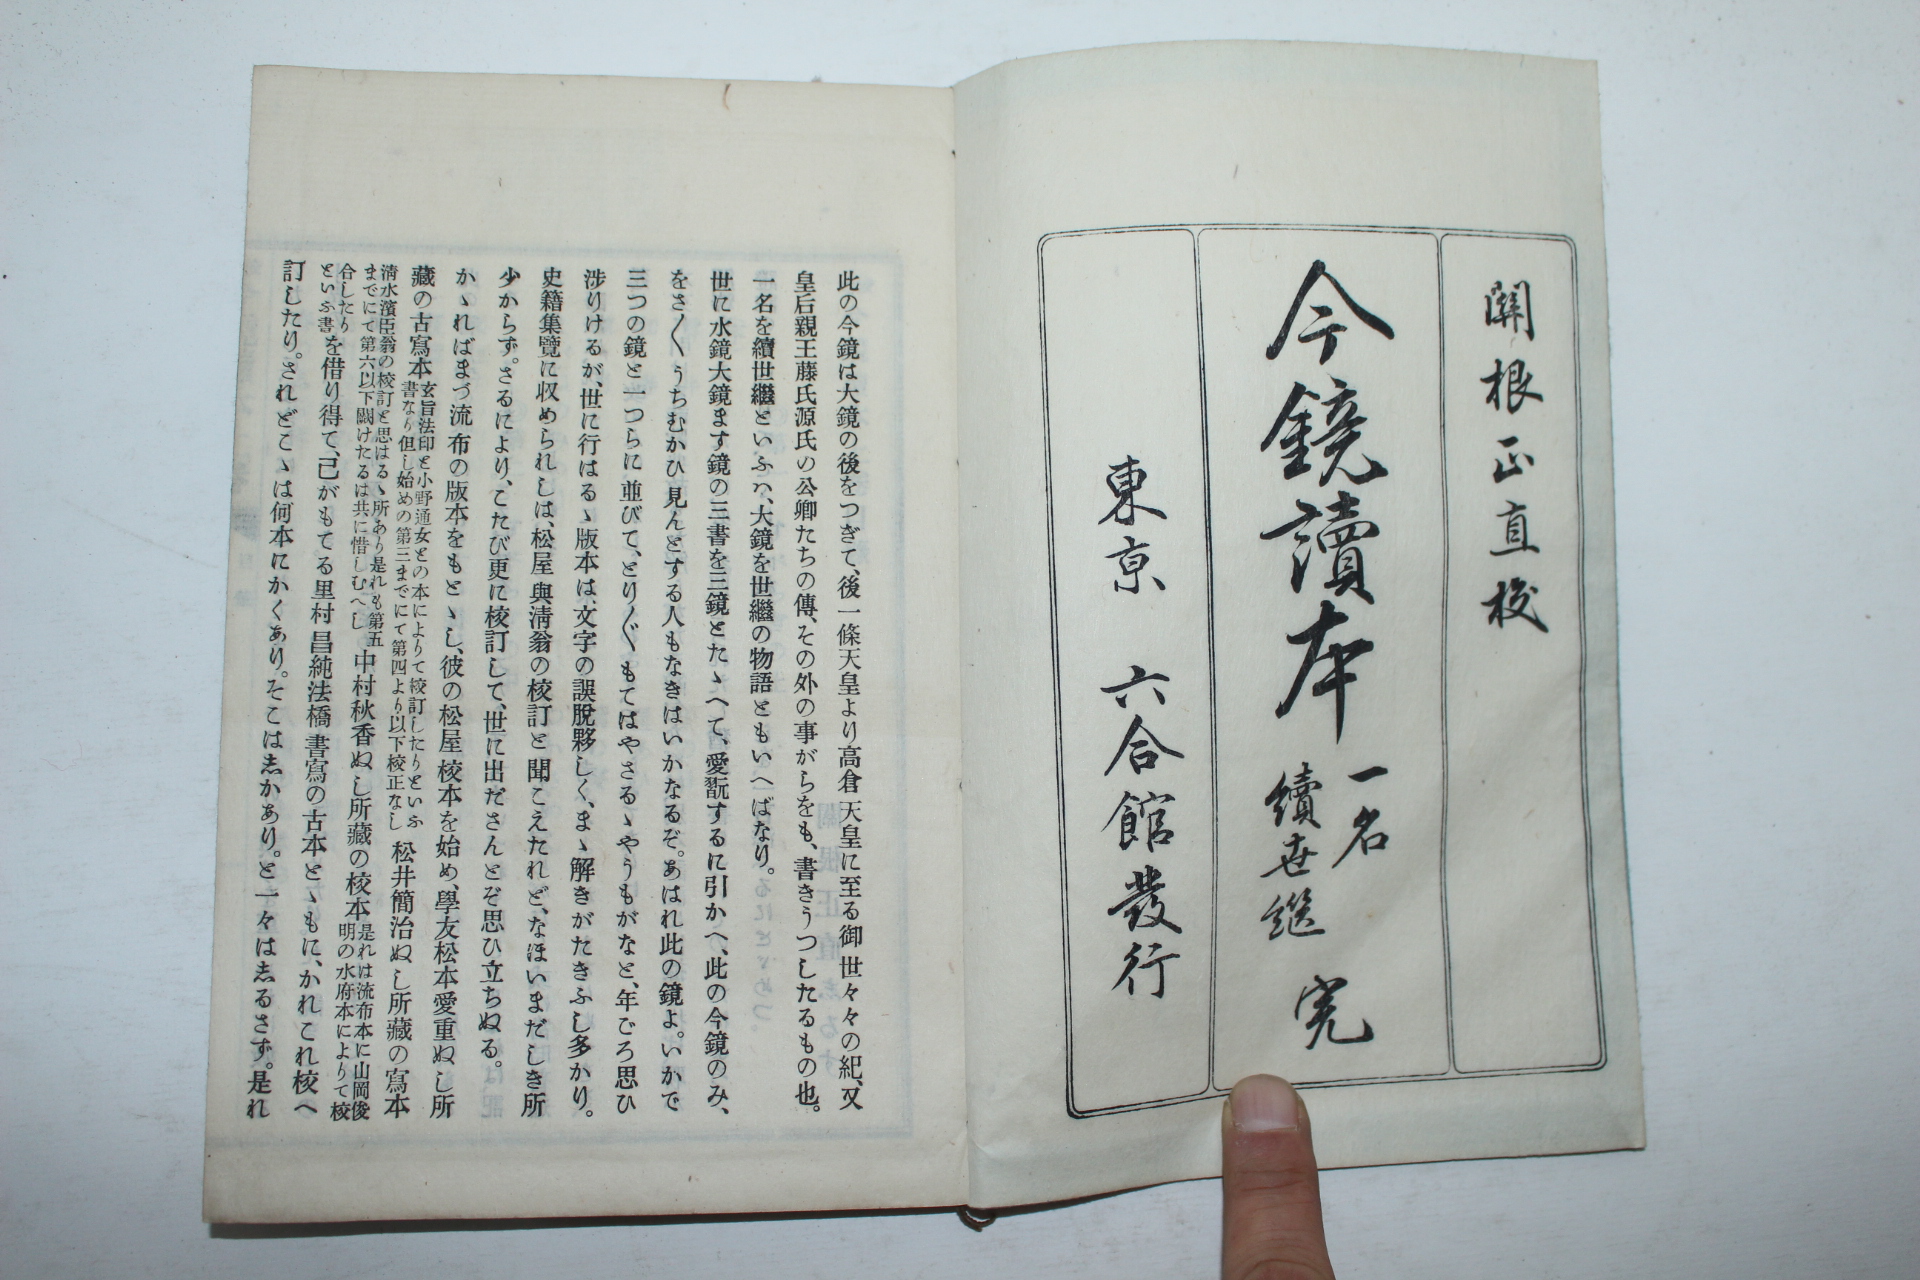 關根正直校
今鏡讀本 一名續世繼 完
東京 六合館發行
此の今鏡は大鏡の後をつぎて、後一條天皇より高倉天皇に至る御世々々の紀、又
皇后親王藤氏源氏の公卿たちの傳、その外の事がらをも、書きうつしたるもの也。
一名を續世繼といふハ、大鏡を世繼の物語ともいへばなり。
世に水鏡大鏡ます鏡の三書を三鏡とたゝへて、愛翫するに引かへ、此の今鏡のみ、
をさ〱うちむかひ見んとする人もなきはいかなるぞ。あはれ此の鏡よ。いかで
三つの鏡と一つらに並びて、とり〲もてはやさるゝやうもがなと、年ごろ思ひ
渉りけるが、世に行はるゝ版本は、文字の誤脫夥しく、まゝ解きがたきふし多かり。
史籍集覽に収められしは、松屋與淸翁の校訂と聞こえたれど、なほいまだしき所
少からず。さるにより、こたび更に校訂して、世に出ださんとぞ思ひ立ちぬる。
かゝればまづ流布の版本をもとゝし、彼の松屋校本を始め、學友松本愛重ぬし所
藏の古寫本
玄旨法印と小野通女との本によりて校訂したりといふ
書なり但し始めの第三までにて第四より以下校正なし
松井簡治ぬし所藏の寫本
淸水濱臣翁の校訂と思はるゝ所あり是れも第五
までにて第六以下闕けたるは共に惜しむへし
中村秋香ぬし所藏の校本
是れは流布本に山岡俊
明の水府本によりて校
合したり
といふ書
を借り得て、己がもてる里村昌純法橋書寫の古本とゝもに、かれこれ校へ
訂したり。されどこゝは何本にかくあり。そこは志かあり。と一々は志るさず。是れ